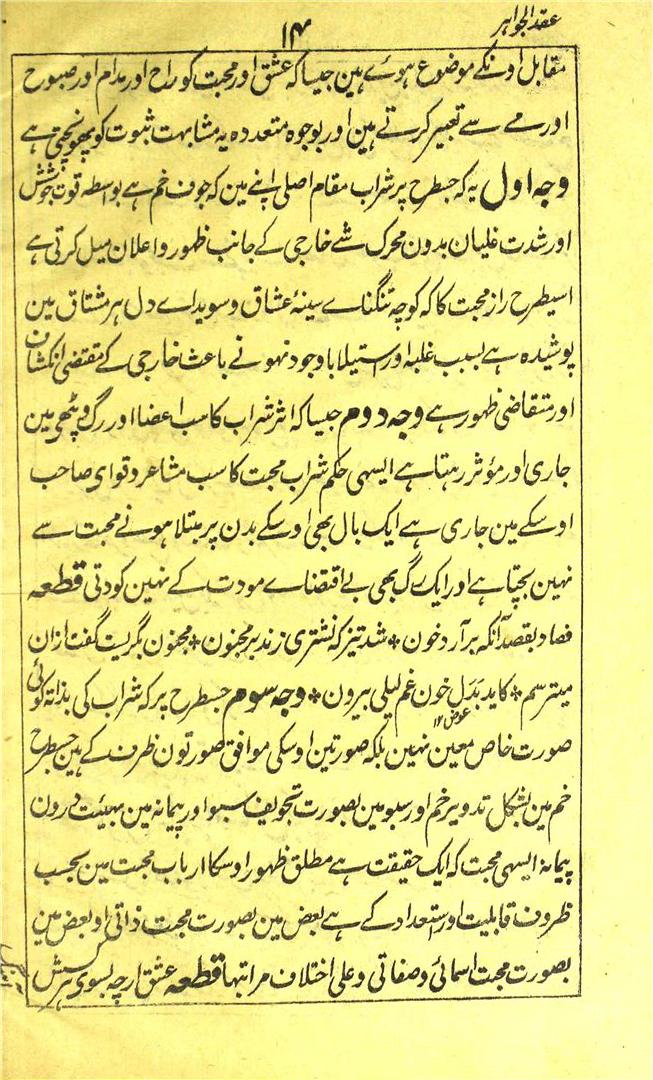 عقد الجواہر
۱۴
مقابل اونکے موضوع ہوئے ہین جیسا کہ عشق اور محبت کو راح اور مدام اور صبوح
اور مے سے تعبیر کرتے ہین اور بوجوہ متعددہ یہ مشابہت ثبوت کو پھونچی ہے
وجہ اول یہ کہ جسطرح پر شراب مقام اصلی اپنے مین کہ جوف خم ہے بواسطہ قوت جوشش
اور شدت غلیان بدون محرک شے خارجی کے جانب ظہور و اعلان میل کرتی ہے
اسیطرح راز محبت کا کہ کوچہ تنگناے سینۂ عشاق و سویداے دل ہر مشتاق مین
پوشیدہ ہے بسبب غلبہ اور استیلا باوجود نہونے باعث خارجی کے مقتضی انکشاف
اور متقاضی ظہور ہے وجہ دوم جیسا کہ اثر شراب کا سب اعضا اور رگ و پٹھی مین
جاری اور مؤثر رہتا ہے ایسہی حکم شراب محبت کا سب مشاعر و قواے صاحب
اوسکے مین جاری ہے ایک بال بھی اوسکے بدن پر مبتلا ہونے محبت سے
نہین بچتا ہے اور ایک رگ بھی بے اقتضاے مودت کے نہین کودتی قطعہ
فصاد بقصد آنکہ برآرد خون * شد تیز کہ نشتری زند بر مجنون * مجنون بگریست گفت ازان
میترسم * کاید بدل خون غم لیلی بیرون * وجہ سوم جسطرح پر کہ شراب کی بذاتہ کوئی
عوض ۱۲
صورت خاص معین نہین بلکہ صورتین اوسکی موافق صورتون ظرف کے ہین جسطرح
خم مین بشکل تدویر خم اور سبو مین بصورت تجویف سبو اور پیمانہ مین بہیئت درون
پیمانہ ایسہی محبت کہ ایک حقیقت ہے مطلق ظہور اوسکا ارباب محبت مین بحسب
ظروف قابلیت اور استعداد کے ہے بعض مین بصورت محبت ذاتی اور بعض مین
بصورت محبت اسمائی و صفاتی و علی اختلاف مراتبہا قطعہ عشق ارچہ بسوی ہر